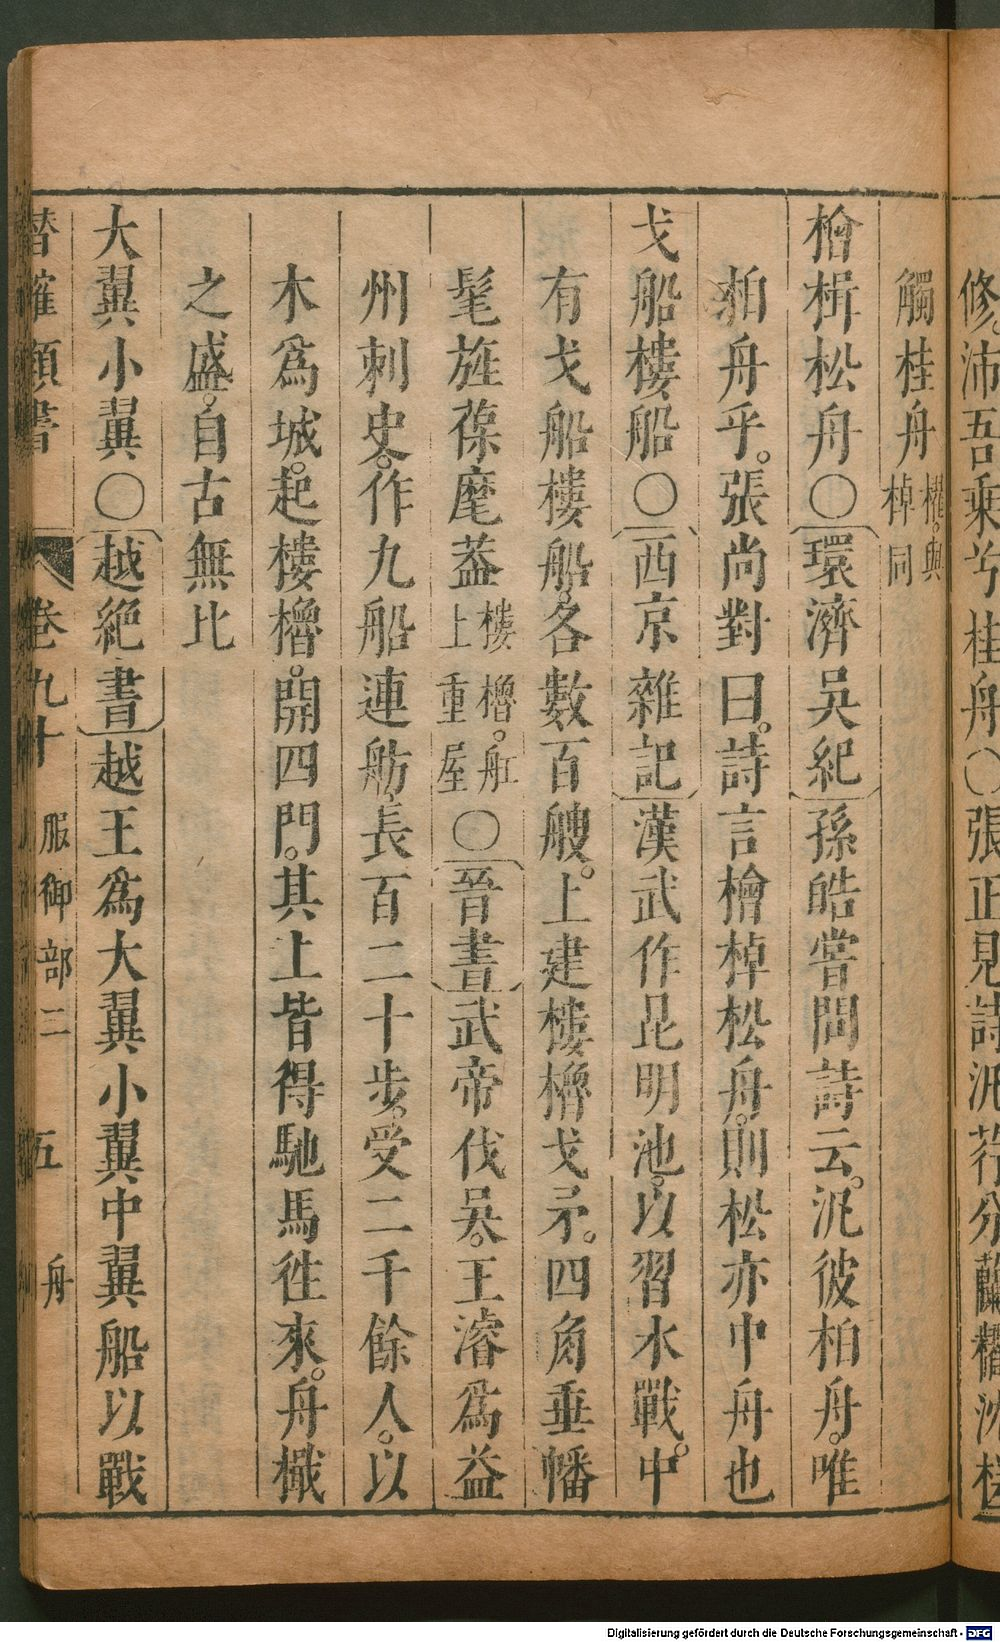 修沛吾乘兮桂舟○張正見詩汎荇分蘭櫂沈桂
觸桂舟櫂與棹同
檜楫松舟○環濟吳紀孫皓嘗問詩云汎彼柏舟唯
柏舟乎張尚對曰詩言檜棹松舟則松亦中舟也
戈船樓船○西京雜記漢武作昆明池以習水戰中
有戈船樓船各數百艘上建樓櫓戈矛四角垂幡
髦旌葆麾葢樓櫓舡上重屋○晉書武帝伐吳王濬爲益
州刺史作九船連舫長百二十步受二千餘人以
木爲城起樓櫓開四門其上皆得馳馬徃來舟檝
之盛自古無比
大翼小翼○越絶書越王爲大翼小翼中翼船以戰
潛確類書 卷九十 服御部二 五 舟
Digitalisierung gefördert durch die Deutsche Forschungsgemeinschaft - DFG